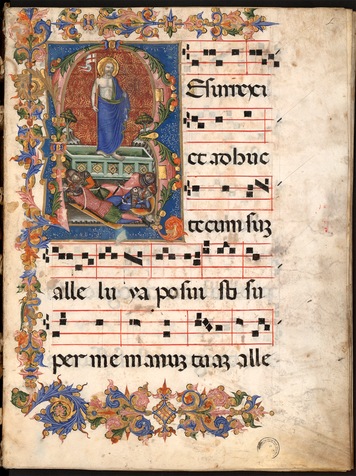 Esurrexi
et adhuc
tecum suz
alle lu ya posui sti su
per me manuz tuaz alle